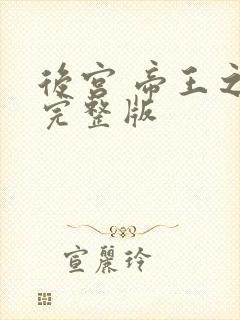 後宮 帝王之
完整版
宣麗玲